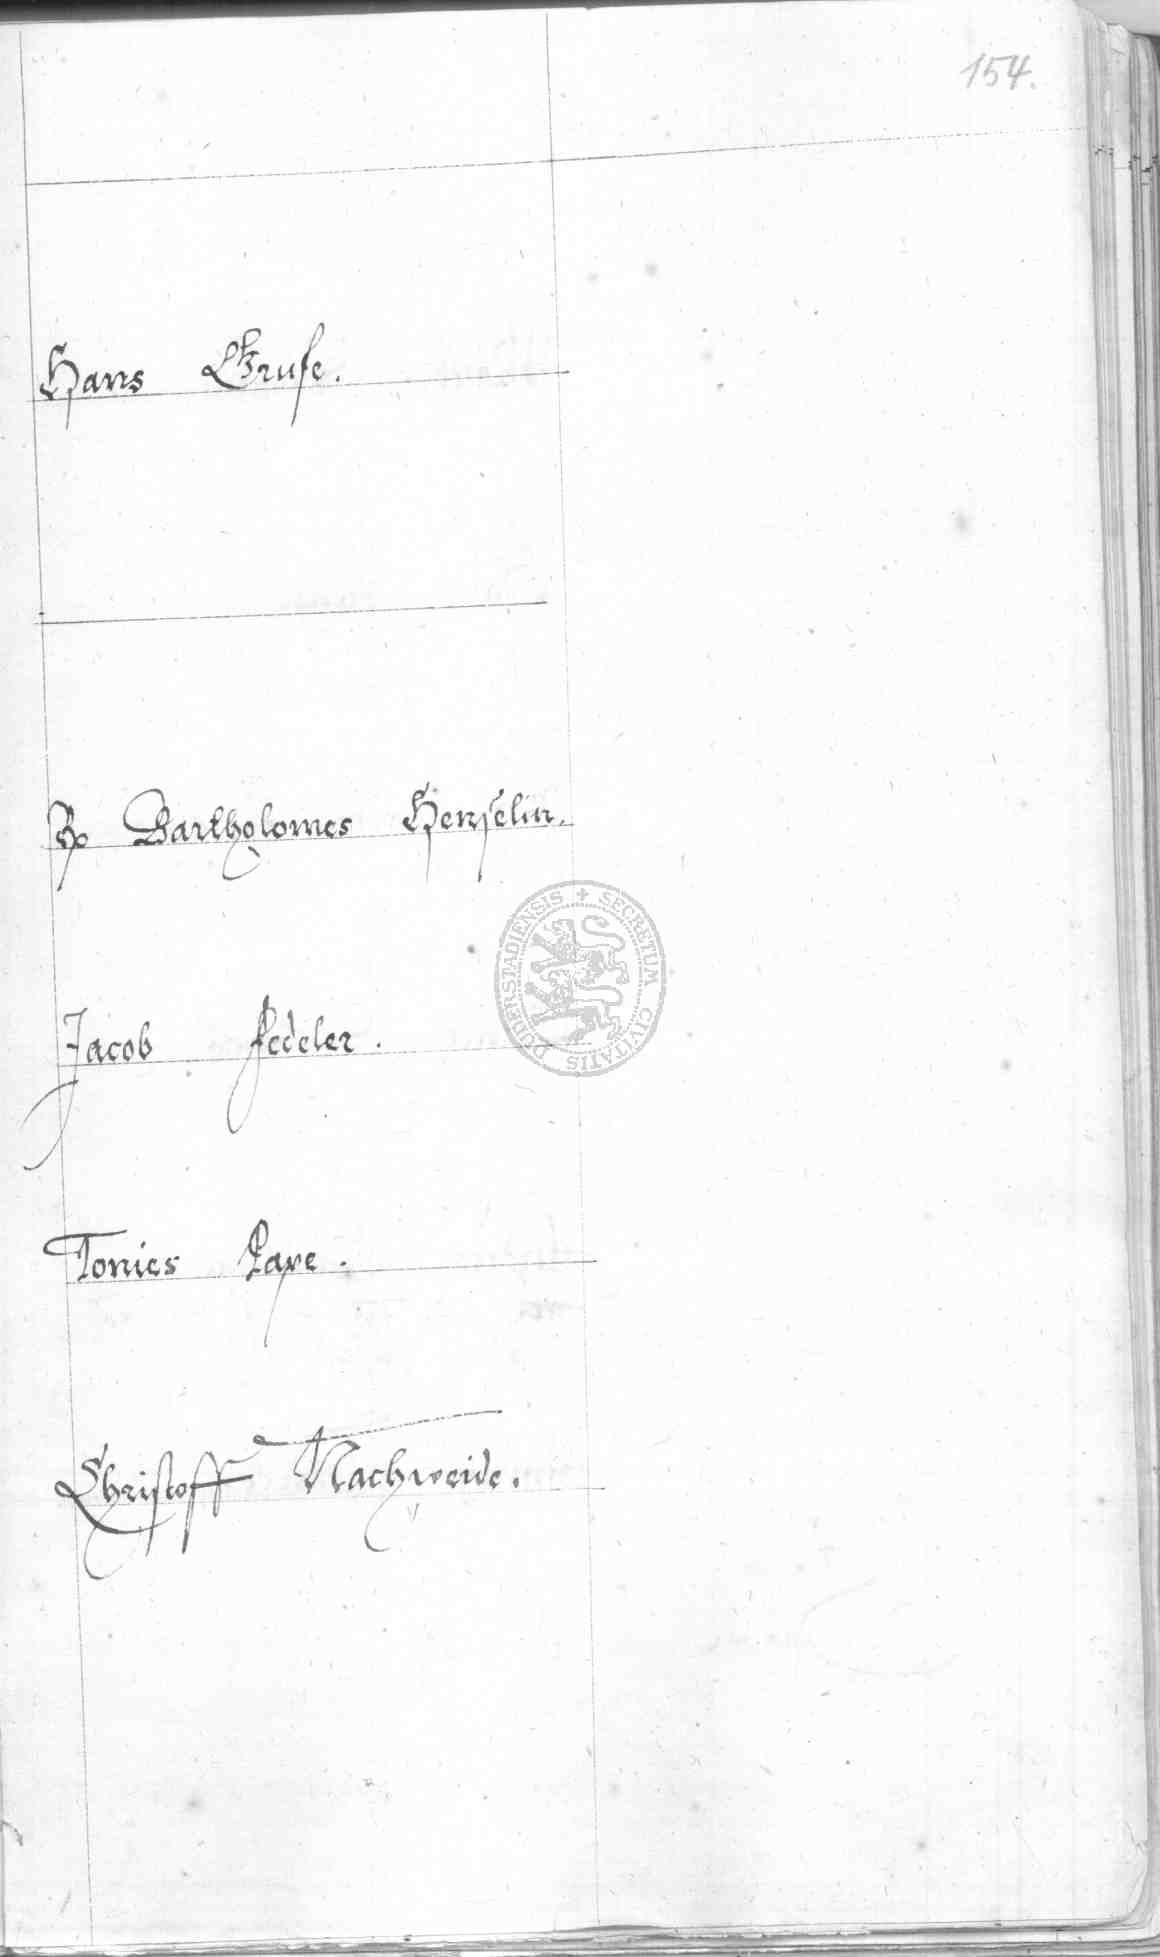 154.
Hans Gruse.
Bartholomes Henselin.
Jacob Fedeler.
Tonies Pape.
Christoff Nachweide.
SECRETUM CIVITATIS DUDERSTADIENSIS